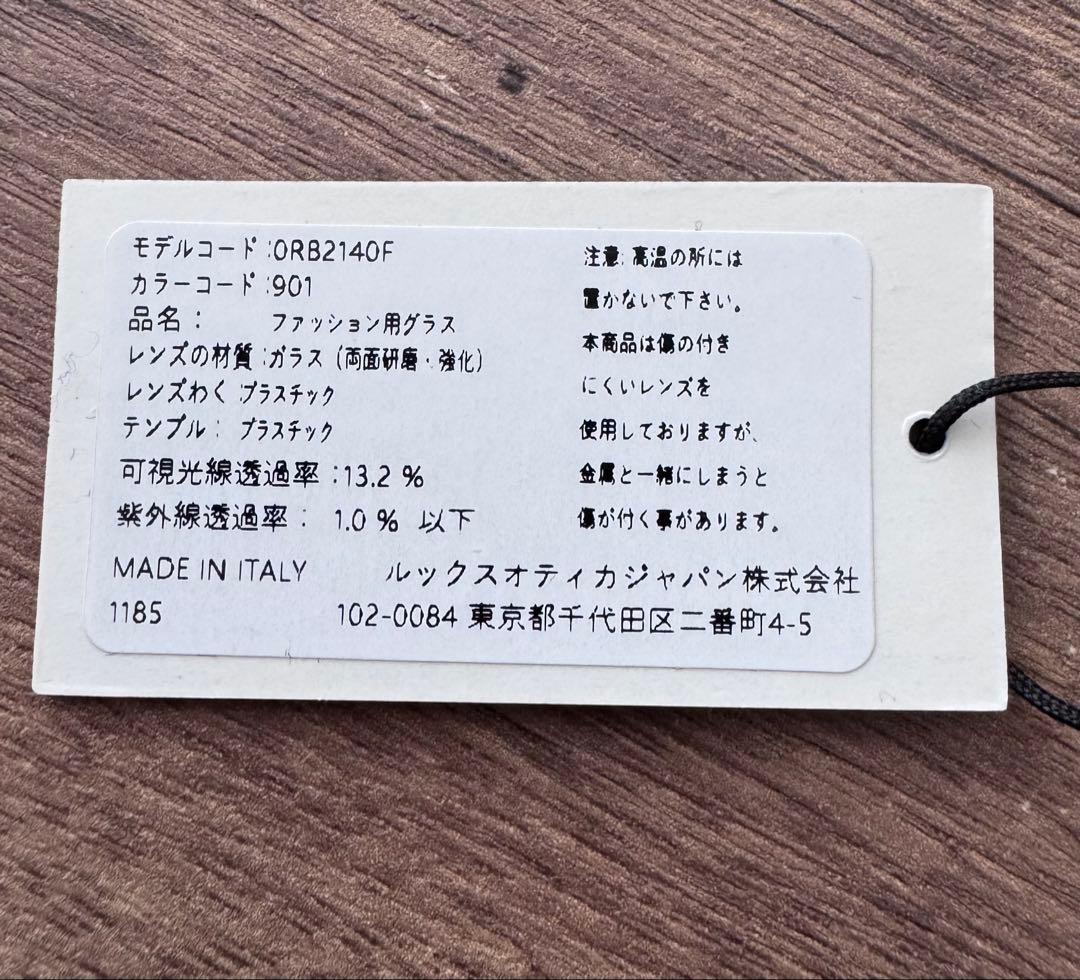 モデルコード:0RB2140F
カラーコード:901
品名: ファッション用グラス
レンズの材質:ガラス (両面研磨・強化)
レンズわく:プラスチック
テンプル: プラスチック
可視光線透過率:13.2 %
紫外線透過率: 1.0 % 以下
注意:高温の所には
置かないで下さい。
本商品は傷の付き
にくいレンズを
使用しておりますが、
金属と一緒にしまうと
傷が付く事があります。
MADE IN ITALY ルックスオティカジャパン株式会社
1185 102-0084 東京都千代田区二番町4-5